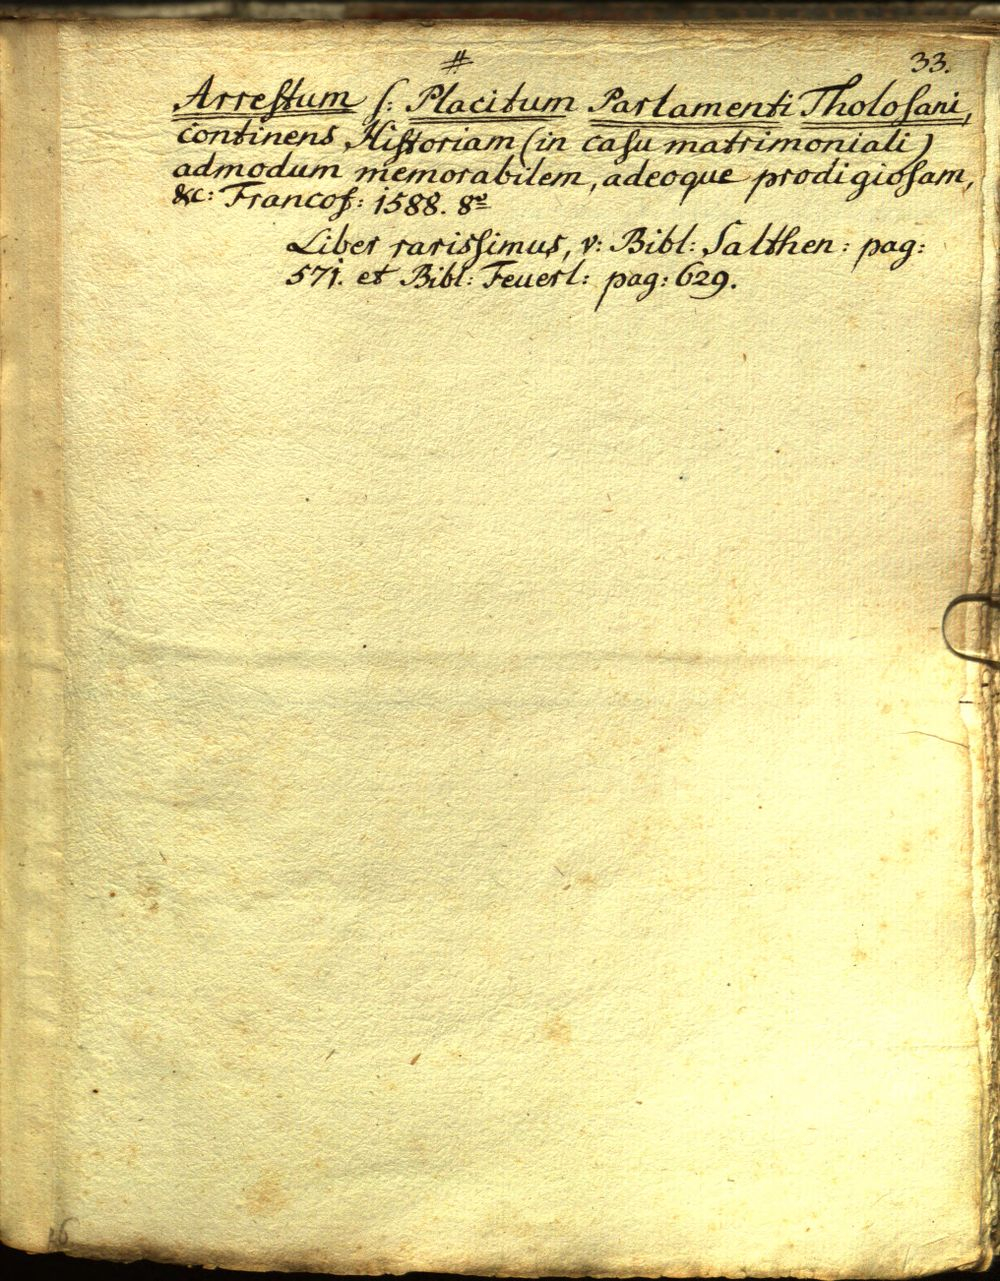 #
33.
Arreſtum ſ: Placitum Parlamenti Tholoſani,
continens Hiſtoriam (in caſu matrimoniali)
admodum memorabilem, adeoque prodigioſam,
&c: Francof: 1588. 8º
Liber rariſſimus, v: Bibl: Salthen: pag:
571. et Bibl: Feuerl: pag: 629.